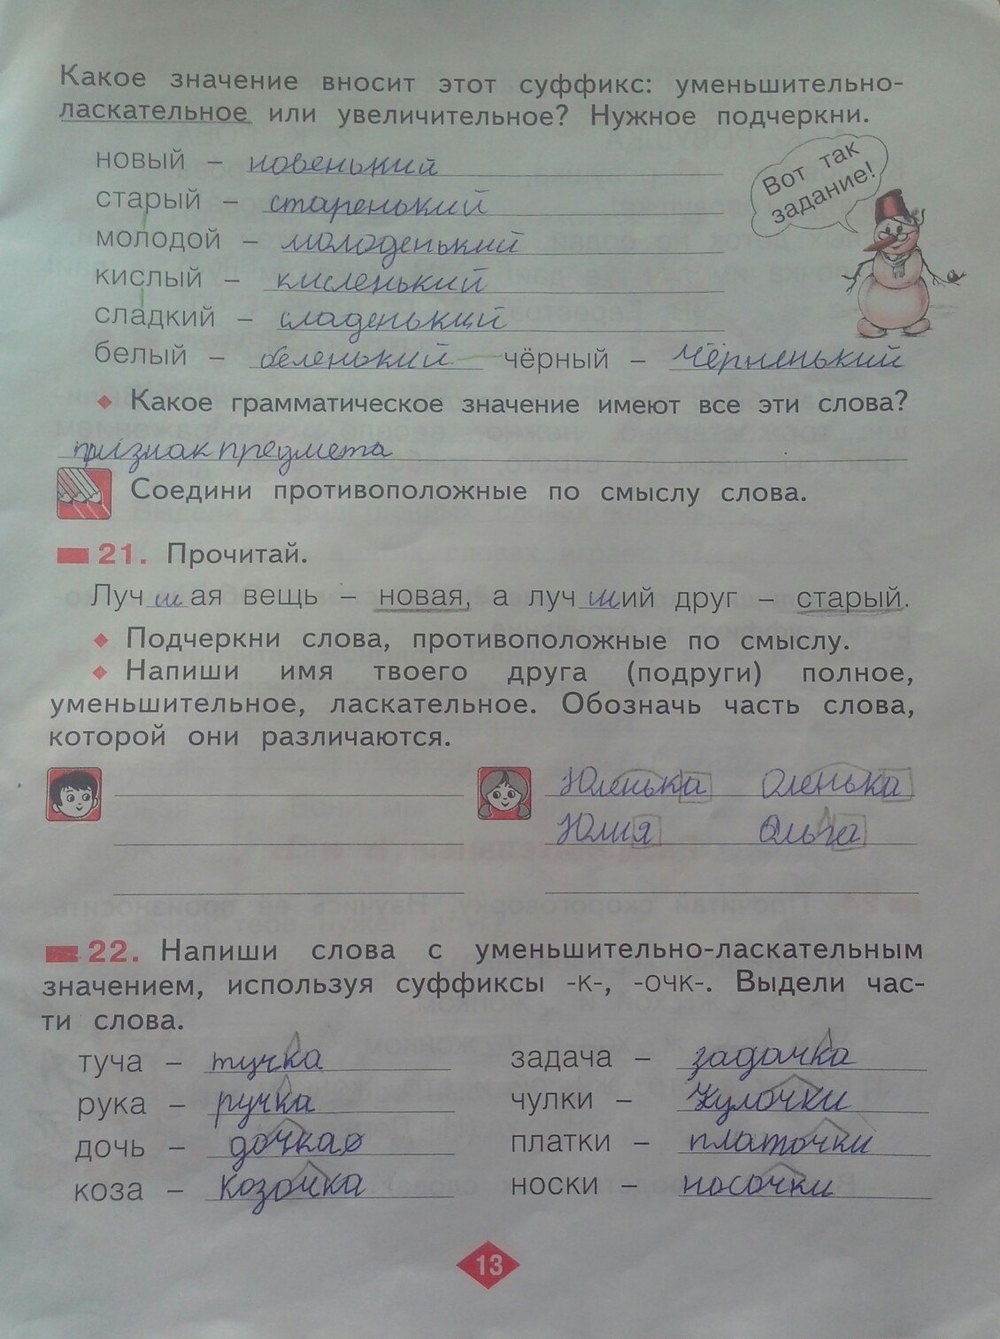 Какое значение вносит этот суффикс: уменьшительно-
ласкательное или увеличительное? Нужное подчеркни.
новый – новенький
Вот так
задание!
старый – старенький
молодой – молоденький
кислый – кисленький
сладкий – сладенький
белый – беленький чёрный – Чёрненький
Какое грамматическое значение имеют все эти слова?
признак предмета
Соедини противоположные по смыслу слова.
21. Прочитай.
Лучшая вещь – новая, а лучший друг – старый.
Подчеркни слова, противоположные по смыслу.
Напиши имя твоего друга (подруги) полное,
уменьшительное, ласкательное. Обозначь часть слова,
которой они различаются.
Юленька Оленька
Юлия Ольга
22. Напиши слова с уменьшительно-ласкательным
значением, используя суффиксы -к-, -очк-. Выдели час-
ти слова.
туча – тучка задача – задачка
рука – ручка чулки – чулочки
дочь – дочка платки – платочки
коза – козочка носки – носочки
13